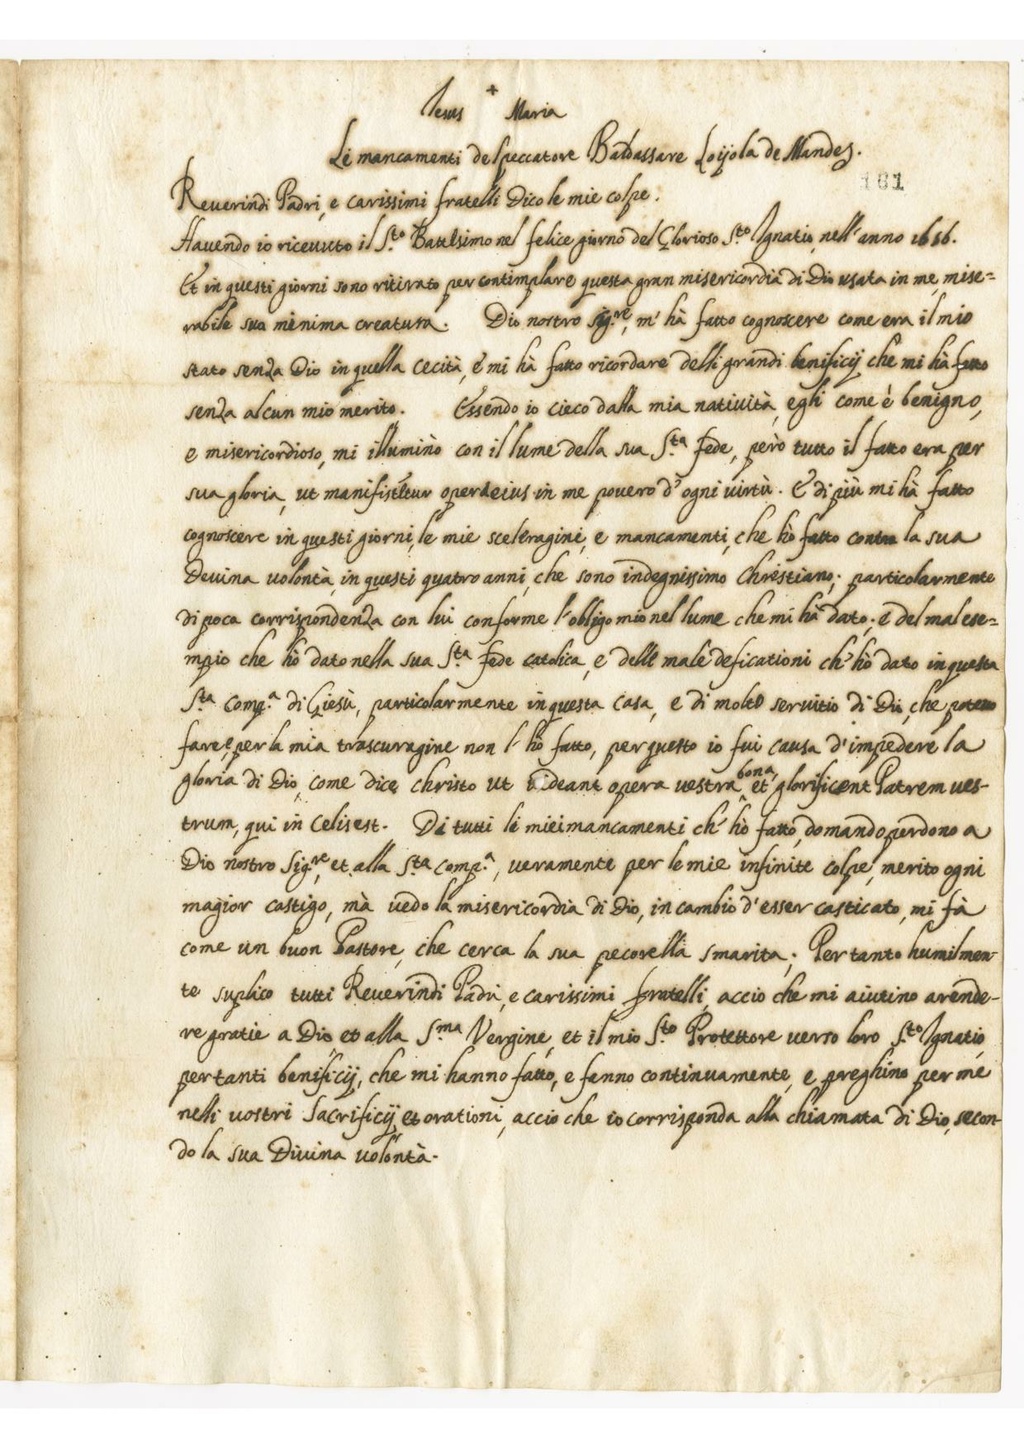 Iesus + Maria
Le mancamenti del peccatore Baldassare Loijola de Mandez.
161
Reuerindi Padri, e carissimi fratelli Dico le mie colpe.
Hauendo io riceuuto il S.to Battesimo nel felice giorno del Glorioso S.to Ignatio, nell'anno 1656.
Et in questi giorni sono ritirato per contimplare questa gran misericordia di Dio usata in me, mise=
rabile sua minima creatura. Dio nostro Sig.re, m'hà fatto cognoscere come era il mio
stato senza Dio in quella cecità, é mi hà fatto ricordare delli grandi benificij che mi hà fatto
senza alcun mio merito. Essendo io cieco dalla mia natiuità, egli come è benigno,
e misericordioso, mi illuminò con il lume della sua S.ta fede, però tutto il fatto era per
sua gloria, ut manifistetur opera eius in me pouero d'ogni uirtù. É di più mi hà fatto
cognoscere in questi giorni, le mie sceleragini, e mancamenti, che hò fatto contra la sua
Deuina uolontà, in questi quatro anni, che sono indegnissimo Christiano; particolarmente
di poca corrispondenza con lui conforme l'obligo mio nel lume che mi hà dato; é del mal ese=
mpio che hò dato nella sua S.ta fede catolica, e delle male deficationi ch'hò dato in questa
S.ta Comp.a di Giesù, particolarmente in questa casa, e di molto seruitio di Dio, che poteuo
fare, e per la mia trascuragine non l'hò fatto, per questo io fui causa d'impedere la
gloria di Dio, come dice christo ut uideant opera uestra bona, et glorificent Patrem ues-
trum, qui in Celis est. Di tutti li miei mancamenti ch'hò fatto, domando perdono a
Dio nostro Sig.re, et alla S.ta Comp.a, ueramente per le mie infinite colpe, merito ogni
magior castigo, mà uedo la misericordia di Dio, in cambio d'esser casticato, mi fà
come un buon Pastore, che cerca la sua pecorella smarita; Per tanto humilmen-
te suplico tutti Reuerindi Padri, e carissimi fratelli, accio che mi aiutino a rende-
re gratie a Dio, et alla S.ma Vergine, et il mio S.to Protettore uerso loro S.to Ignatio,
per tanti benificij, che mi hanno fatto, e fanno continuamente, e preghino per me
nelli uostri Sacrificij et orationi, accio che io corrisponda alla chiamata di Dio, secon-
do la sua Diuina uolontà.